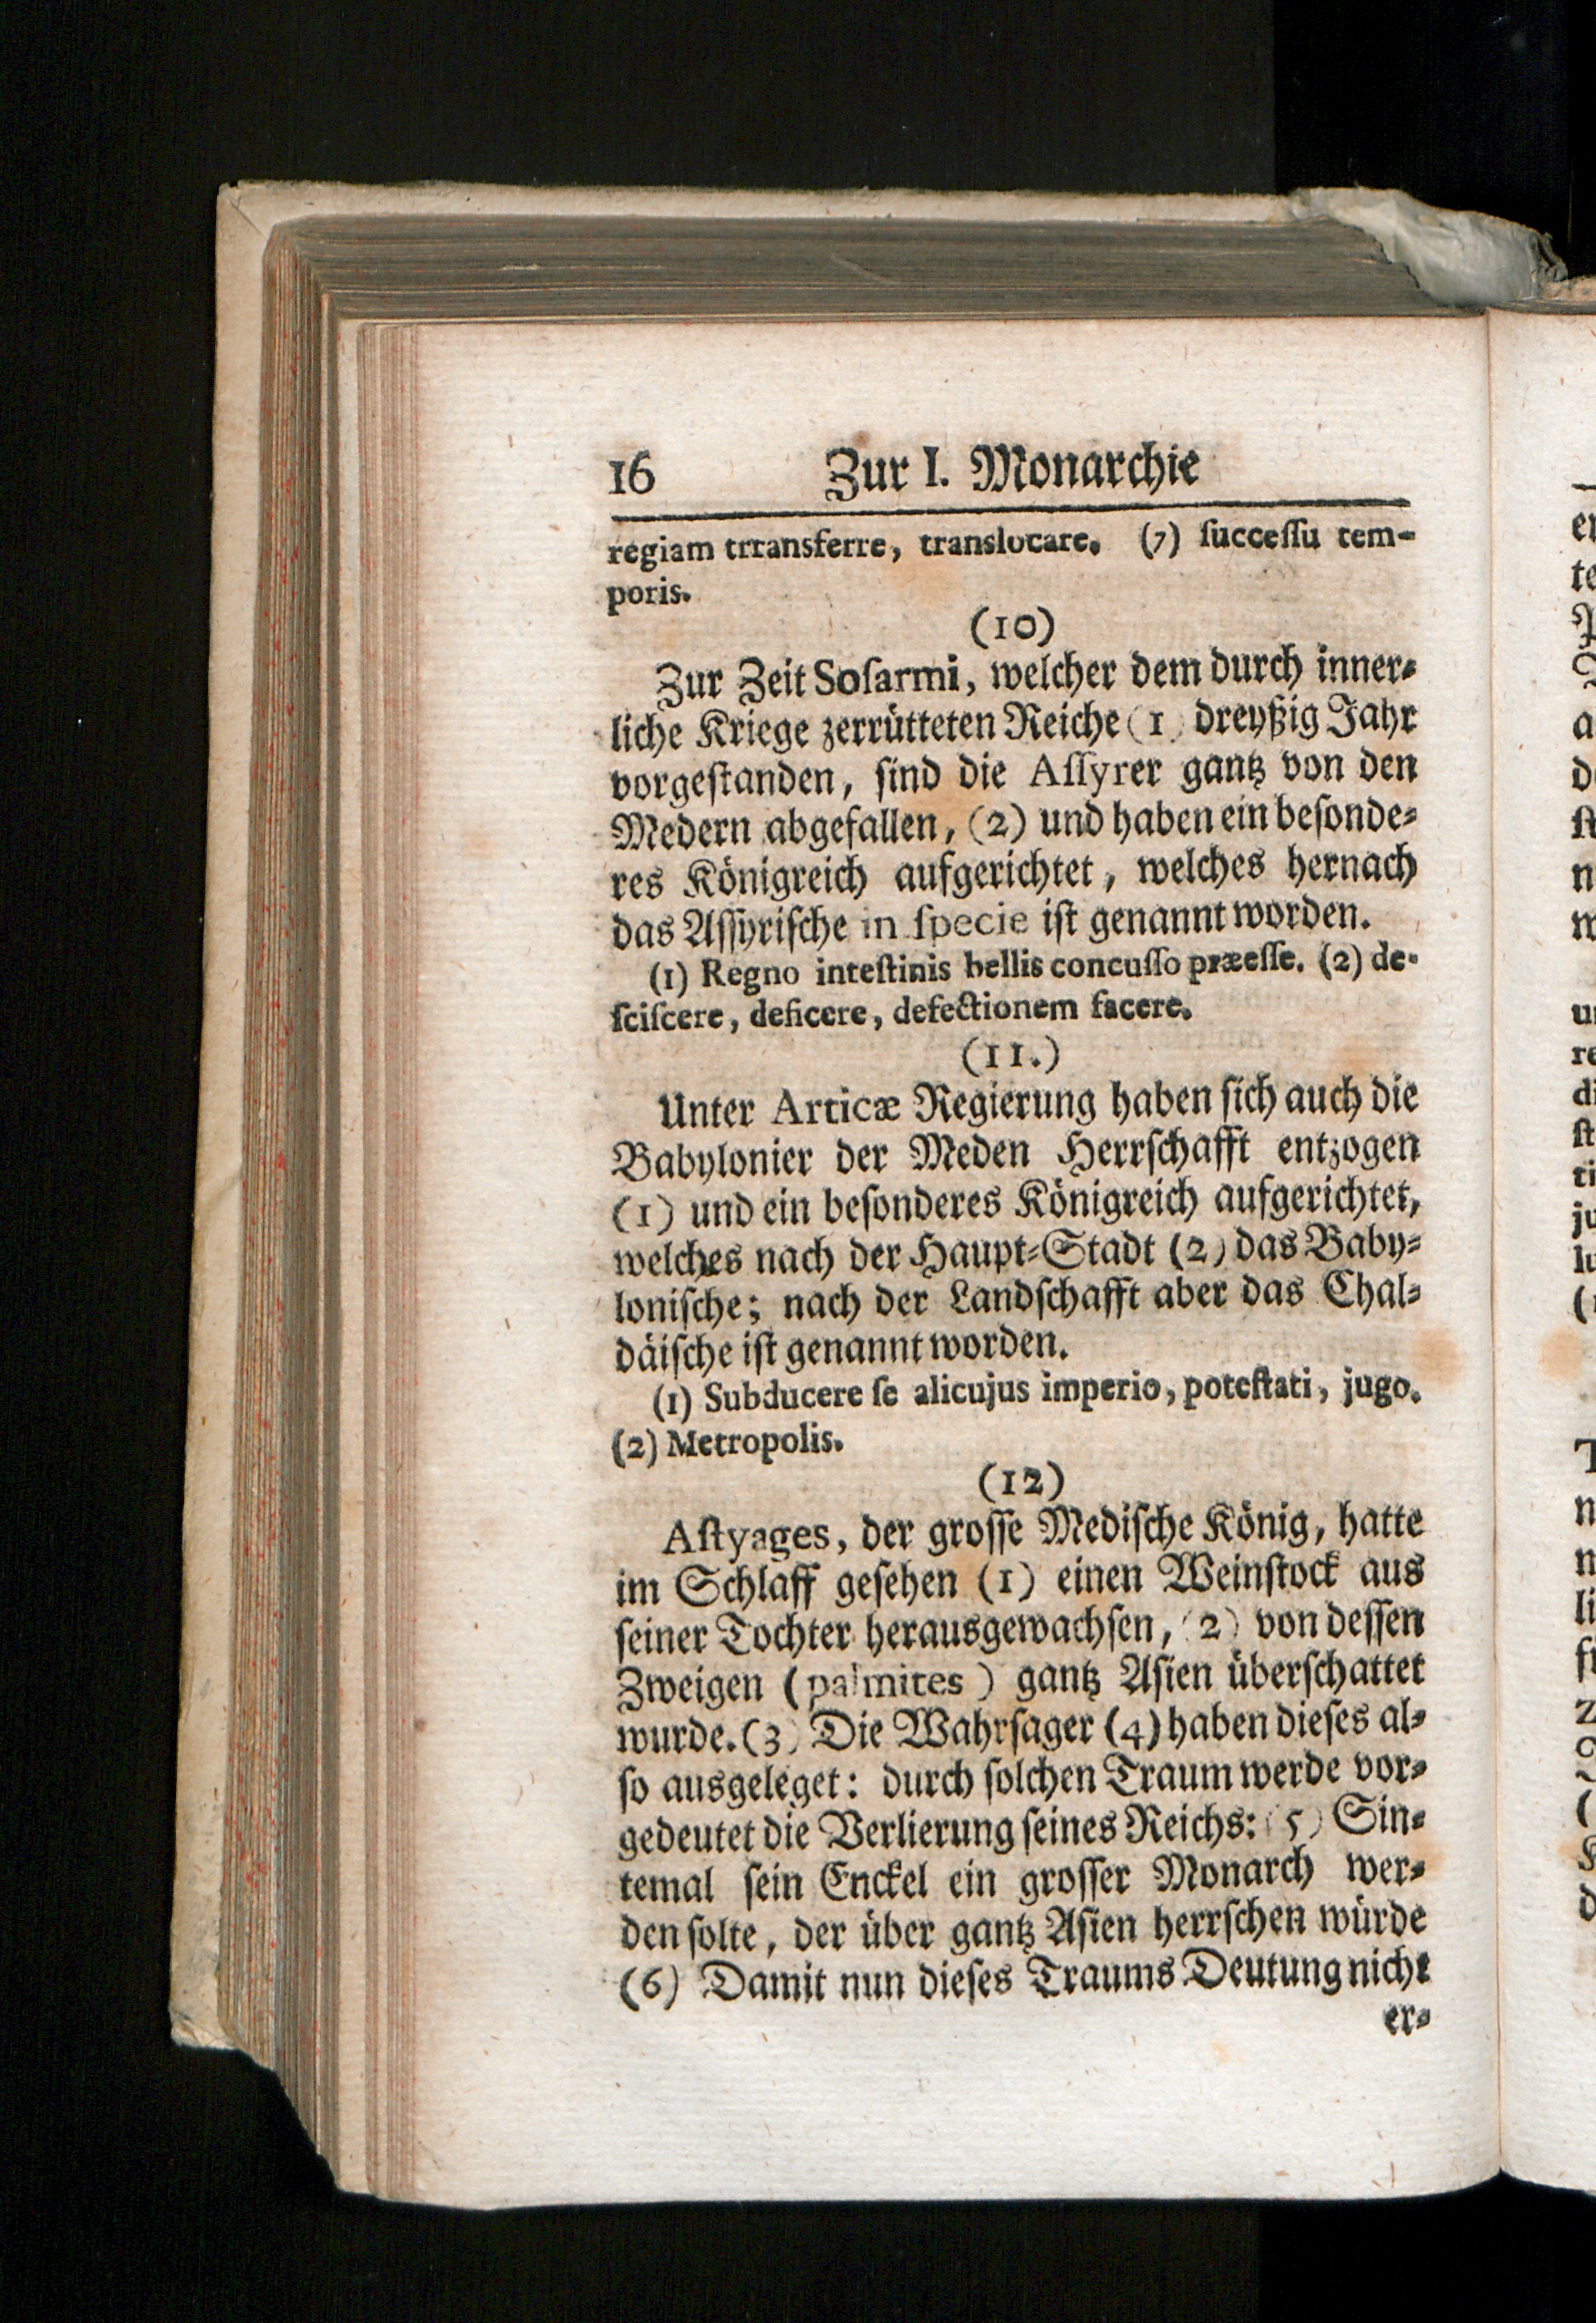 16 Zur I. Monarchie
regiam trransferre, translocare. (7) ſucceſſu tem-
poris.
(10)
Zur Zeit Soſarmi, welcher dem durch inner-
liche Kriege zerrütteten Reiche (1) dreyßig Jahr
vorgeſtanden, ſind die Aſſyrer gantz von den
Medern abgefallen, (2) und haben ein beſonde-
res Königreich aufgerichtet, welches hernach
das Aſſyriſche in ſpecie iſt genannt worden.
(1) Regno inteſtinis bellis concuſſo præeſſe. (2) de-
ſciſcere, deficere, defectionem facere.
(11.)
Unter Articæ Regierung haben ſich auch die
Babylonier der Meden Herrſchafft entzogen
(1) und ein beſonderes Königreich aufgerichtet,
welches nach der Haupt-Stadt (2) das Baby-
loniſche; nach der Landſchafft aber das Chal-
däiſche iſt genannt worden.
(1) Subducere ſe alicujus imperio, poteſtati, jugo.
(2) Metropolis.
(12)
Aſtyages, der groſſe Mediſche König, hatte
im Schlaff geſehen (1) einen Weinſtock aus
ſeiner Tochter herausgewachſen, (2) von deſſen
Zweigen (palmites) gantz Aſien überſchattet
wurde. (3) Die Wahrſager (4) haben dieſes al-
ſo ausgeleget: durch ſolchen Traum werde vor-
gedeutet die Verlierung ſeines Reichs: (5) Sin-
temal ſein Enckel ein groſſer Monarch wer-
den ſolte, der über gantz Aſien herrſchen würde
(6) Damit nun dieſes Traums Deutung nicht
er-